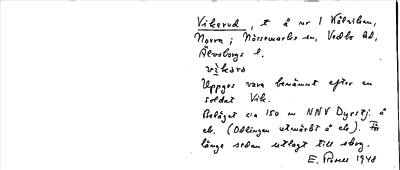 Vikerud, t å nr 1 Kölviken,
Norra; Nössemarks sn, Vedbo hd,
Älvsborgs l.
vìkarö
Uppges vara benämnt efter en
soldat Vik.
Beläget ca 150 m NNV Dyrstj. å
ek. (Odlingen utmärkt å ek). För
länge sedan utlagt till skog.
E. 1948